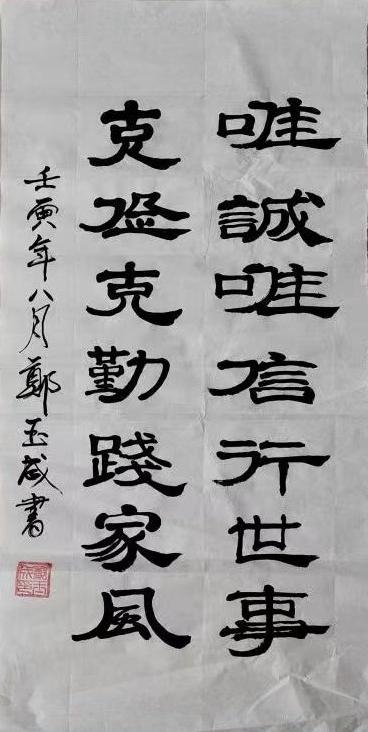 唯誠唯信行世事
克俭克勤踐家風
壬寅年八月鄭玉成書